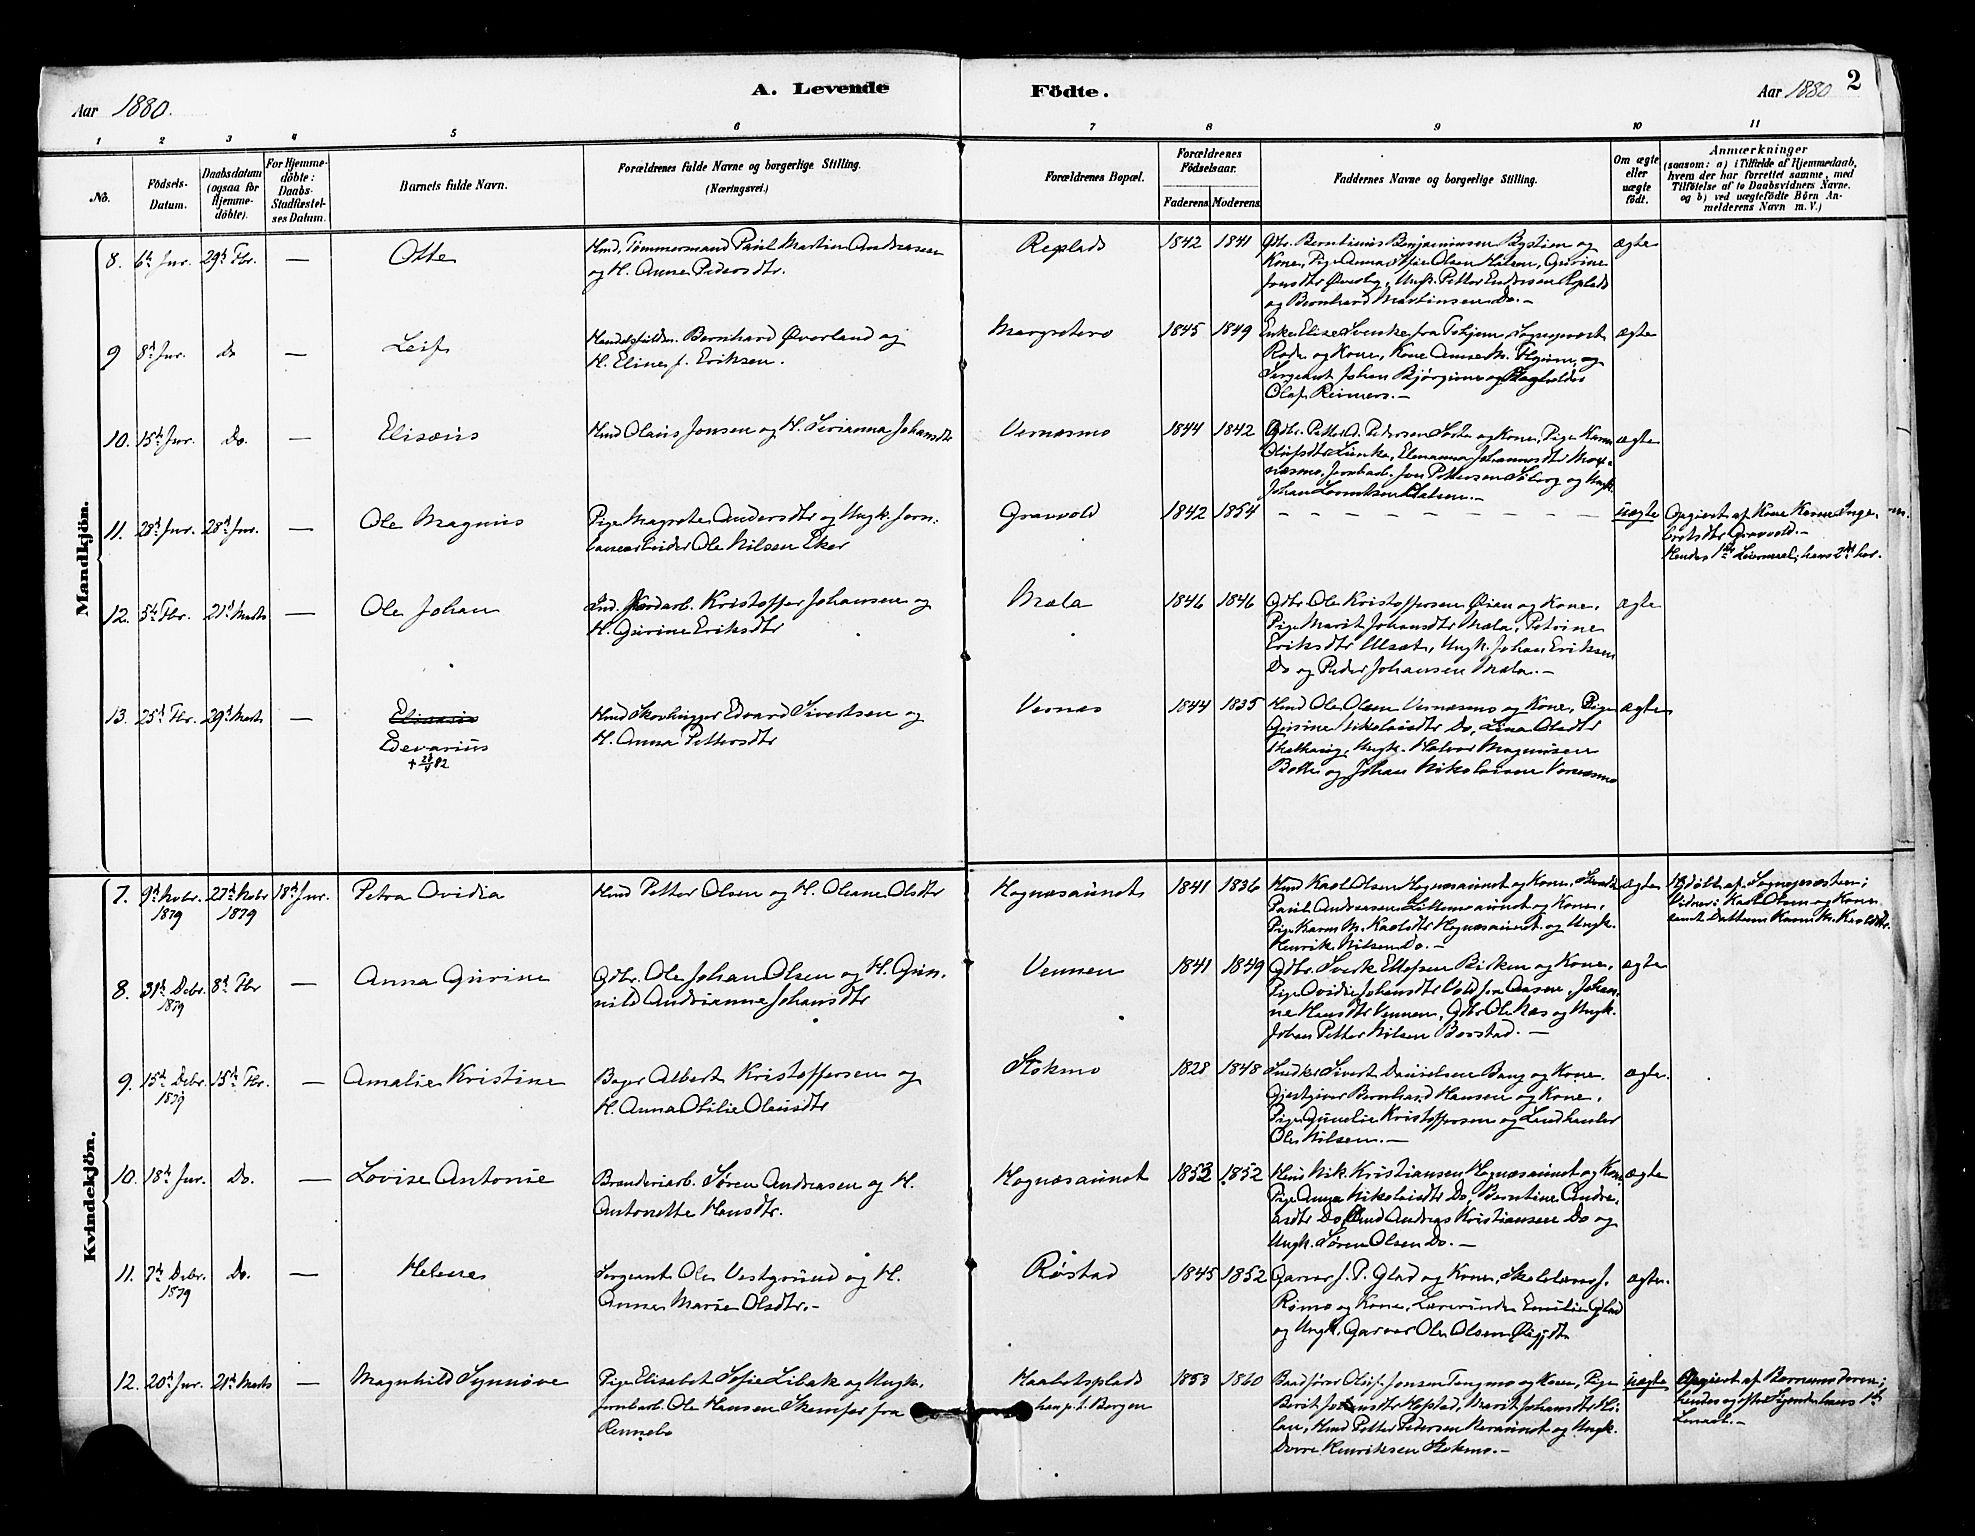 Aar 1880.
A. Levende
Födte.
Aar 1880
2
1 2 3 4 5 6 7 8 9 10 11
No.
Födsels-
Datum.
Daabsdatum
(ogsaa for
Hjemme-
döbte).
For Hjemme-
döbte:
Daabs-
Stadfæstel-
ses Datum.
Barnets fulde Navn.
Forældrenes fulde Navne og borgerlige Stilling.
(Næringsvei.)
Forældrenes Bopæl.
Forældrenes
Födselsaar.
Faderens. Moderens.
Faddernes Navne og borgerlige Stilling.
Om ægte
eller
uægte
födt.
Anmærkninger
(saasom: a) i Tilfælde af Hjemmedaab,
hvem der har forrettet samme, med
Tilföielse af to Daabsvidners Navne,
og b) ved uægtefödte Börn An-
melderens Navn m. V.)
Mandkjön.
8. 6te Jnr. 29de Fbr. — Otte
Hmd. Tømmermand Paul Martin Andreasen
og H. Anna Pedersdtr.
Replads 1842 1841
Gbr. Berntinus Benjaminsen Bystien og
Kone, Pige Anna Sofie Olsen Halsen, Gurine
Jonsdtr Øverby, Ungk. Petter Endresen Replads
og Bernhard Martinsen Do. —
ægte
9 8de Jnr. Do — Leif
Handelsfuldm. Bernhard Øverland og
H. Eline f. Eriksen.
Margretero 1845 1849
Enke Elise Svenke fra Trhjem, Sogneprest
Rode og Kone, Kone Anne M. Flygum, og
Sergeant Johan Bjørgum og
Olaf Reimers. —
ægte
10. 15de Jnr. Do. — Elisæus
Hmd Olaus Jonsen og H. Serianna Johansdtr
Vernæsmo 1844 1842
Gbr. Petter O. Pedersen og Kone, Pige Karen
Olufsdtr Lunke, Elenanna Johannesdtr
Jernbarb. Jon Pettersen og Ungk.
Johan Halsen. —
ægte
11. 28de Jnr. 28de Jnr. — Ole Magnus
Pige Magrete Andersdtr og Ungk. Jern-
banearbeider Ole Nilsen Eker
Gravvold 1842 1854
— — — — — — — —
uægte
Opgivet af Kone Karen Inge-
bertsdtr Gravvold. —
Hendes 1ste Leiermaal; hans 2det
12. 5te Fbr. 21de Marts — Ole Johan
Ind. Jordarb. Kristoffer Johansen og
H. Gurine Eriksdtr
Mæla 1846 1846
Gbr. Ole Kristoffersen Øian og Kone,
Pige Marit Johansdtr Mæla, Petrine
Eriksdtr Ulsæt, Ungk. Johan Eriksen
Do og Peder Johansen Mæla. —
ægte
13. 25de Fbr. 29de Marts — Elisæus
Edevarius
+ 28/4 82
Hmd Skovhugger Edvard Sivertsen og
H. Anna Pettersdtr
Vernæs 1844 1835
Hmd Ole Olsen Vernæsmo og Kone, Pige
Gurine Nikolaisdtr Do, Lina Olsdtr
Ungk. Halvor Magnusen
og Johan Nikolaisen Vernæsmo
ægte
Kvindekjön.
7. 9de Novbr. 1879 27de Novbr 1879 18de Jnr. Petra Ovidia
Hmd Petter Olsen og H. Oleane Olsdtr
Hognæsaunet 1841 1836
Hmd Karl Olsen Hognæsaunet og Kone,
Paul Andreasen og Kone,
Pige Karen M. Karlsdtr Hognæsaunet og Ungk.
Henrik Nilsen Do. —
ægte
Hjdøbt af Sognepræsten;
Vidner: Karl Olsen og Kone
samt Datteren Karen M. Karlsdtr.
8. 31te Debr. 1879 8de Fbr — Anna Gurine
Gbr. Ole Johan Olsen og H. Gun-
nild Andrianna Johansdtr
Vennen 1841 1849
Gbr. Sverk Ellefsen Birken og Kone,
Pige Ovidia Johansdtr Vold fra Aasen, Johan-
ne Hansdtr Vennen, Gbr Ole Næs og Ungk.
Johan Petter Nilsen Borstad. —
ægte
9. 15de Debr. 1879 15de Fbr. — Amalie Kristine
Bager Albert Kristoffersen og
H. Anna Otilie Olausdtr
Stokmo 1828 1848
Snedker Sivert Danielsen Bang og Kone,
Gjestgiver Bernhard Hansen og Kone,
Pige Gunelie Kristoffersen og Landhandler
Ole Nilsen. —
ægte.
10. 18de Jnr. Do. — Lovise Antonie
Brænderiarb. Søren Andreasen og H.
Antonette Hansdtr.
Hognæsaunet 1853 1852
Hmd Nik. Kristiansen Hognæsaunet og Kone
Pige Anna Nikolaisdtr Do, Berntine Andre-
asdtr Do, Hmd Andreas Kristiansen Do og
Ungk. Søren Olsen Do. —
ægte
11. 7de Debr. 1879 Do. — Helene
Sergeant Ole Vestgrund og H.
Anne Marie Olsdtr. —
Røstad 1845 1852
Garver J. P. Glad og Kone, Skolelærer J.
Rømo og Kone, Lærerinde Emilie Glad
og Ungk. Garver Ole Olsen
ægte.
12. 20de Jnr. 21de Marts — Magnhild Synnøve
Pige Elisabet Sofie Libak og Ungk.
Jernbarb. Ole Hansen Skamfer fra
Rennebo
1853 1860
Baadfører Oluf Jonsen Tangmo og Kone, Pige
Berit Hofstad, Marit Johansdtr Hi-
lan, Hmd Petter Pedersen og Ungk.
Henriksen Stokmo. —
uægte
Opgivet af Barnemoderen;
hendes og efter Sigende hans 1ste
Leierm. —